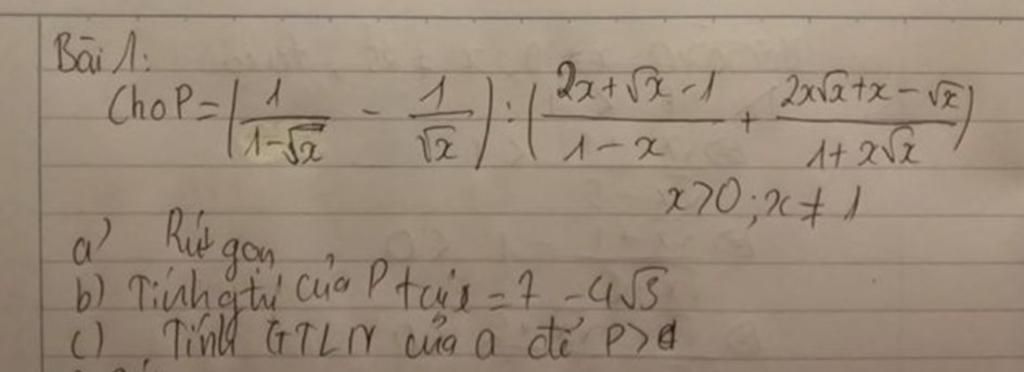 Bài 1:
Cho P = (1/(1-√x) - 1/√x) : ((2x+√x-1)/(1-x) + (2x√x+x-√x)/(1+x√x))
x>0; x≠1
a) Rút gọn
b) Tính gtrị của P tại x = 7 - 4√3
c) Tính GTLN của a để P>a